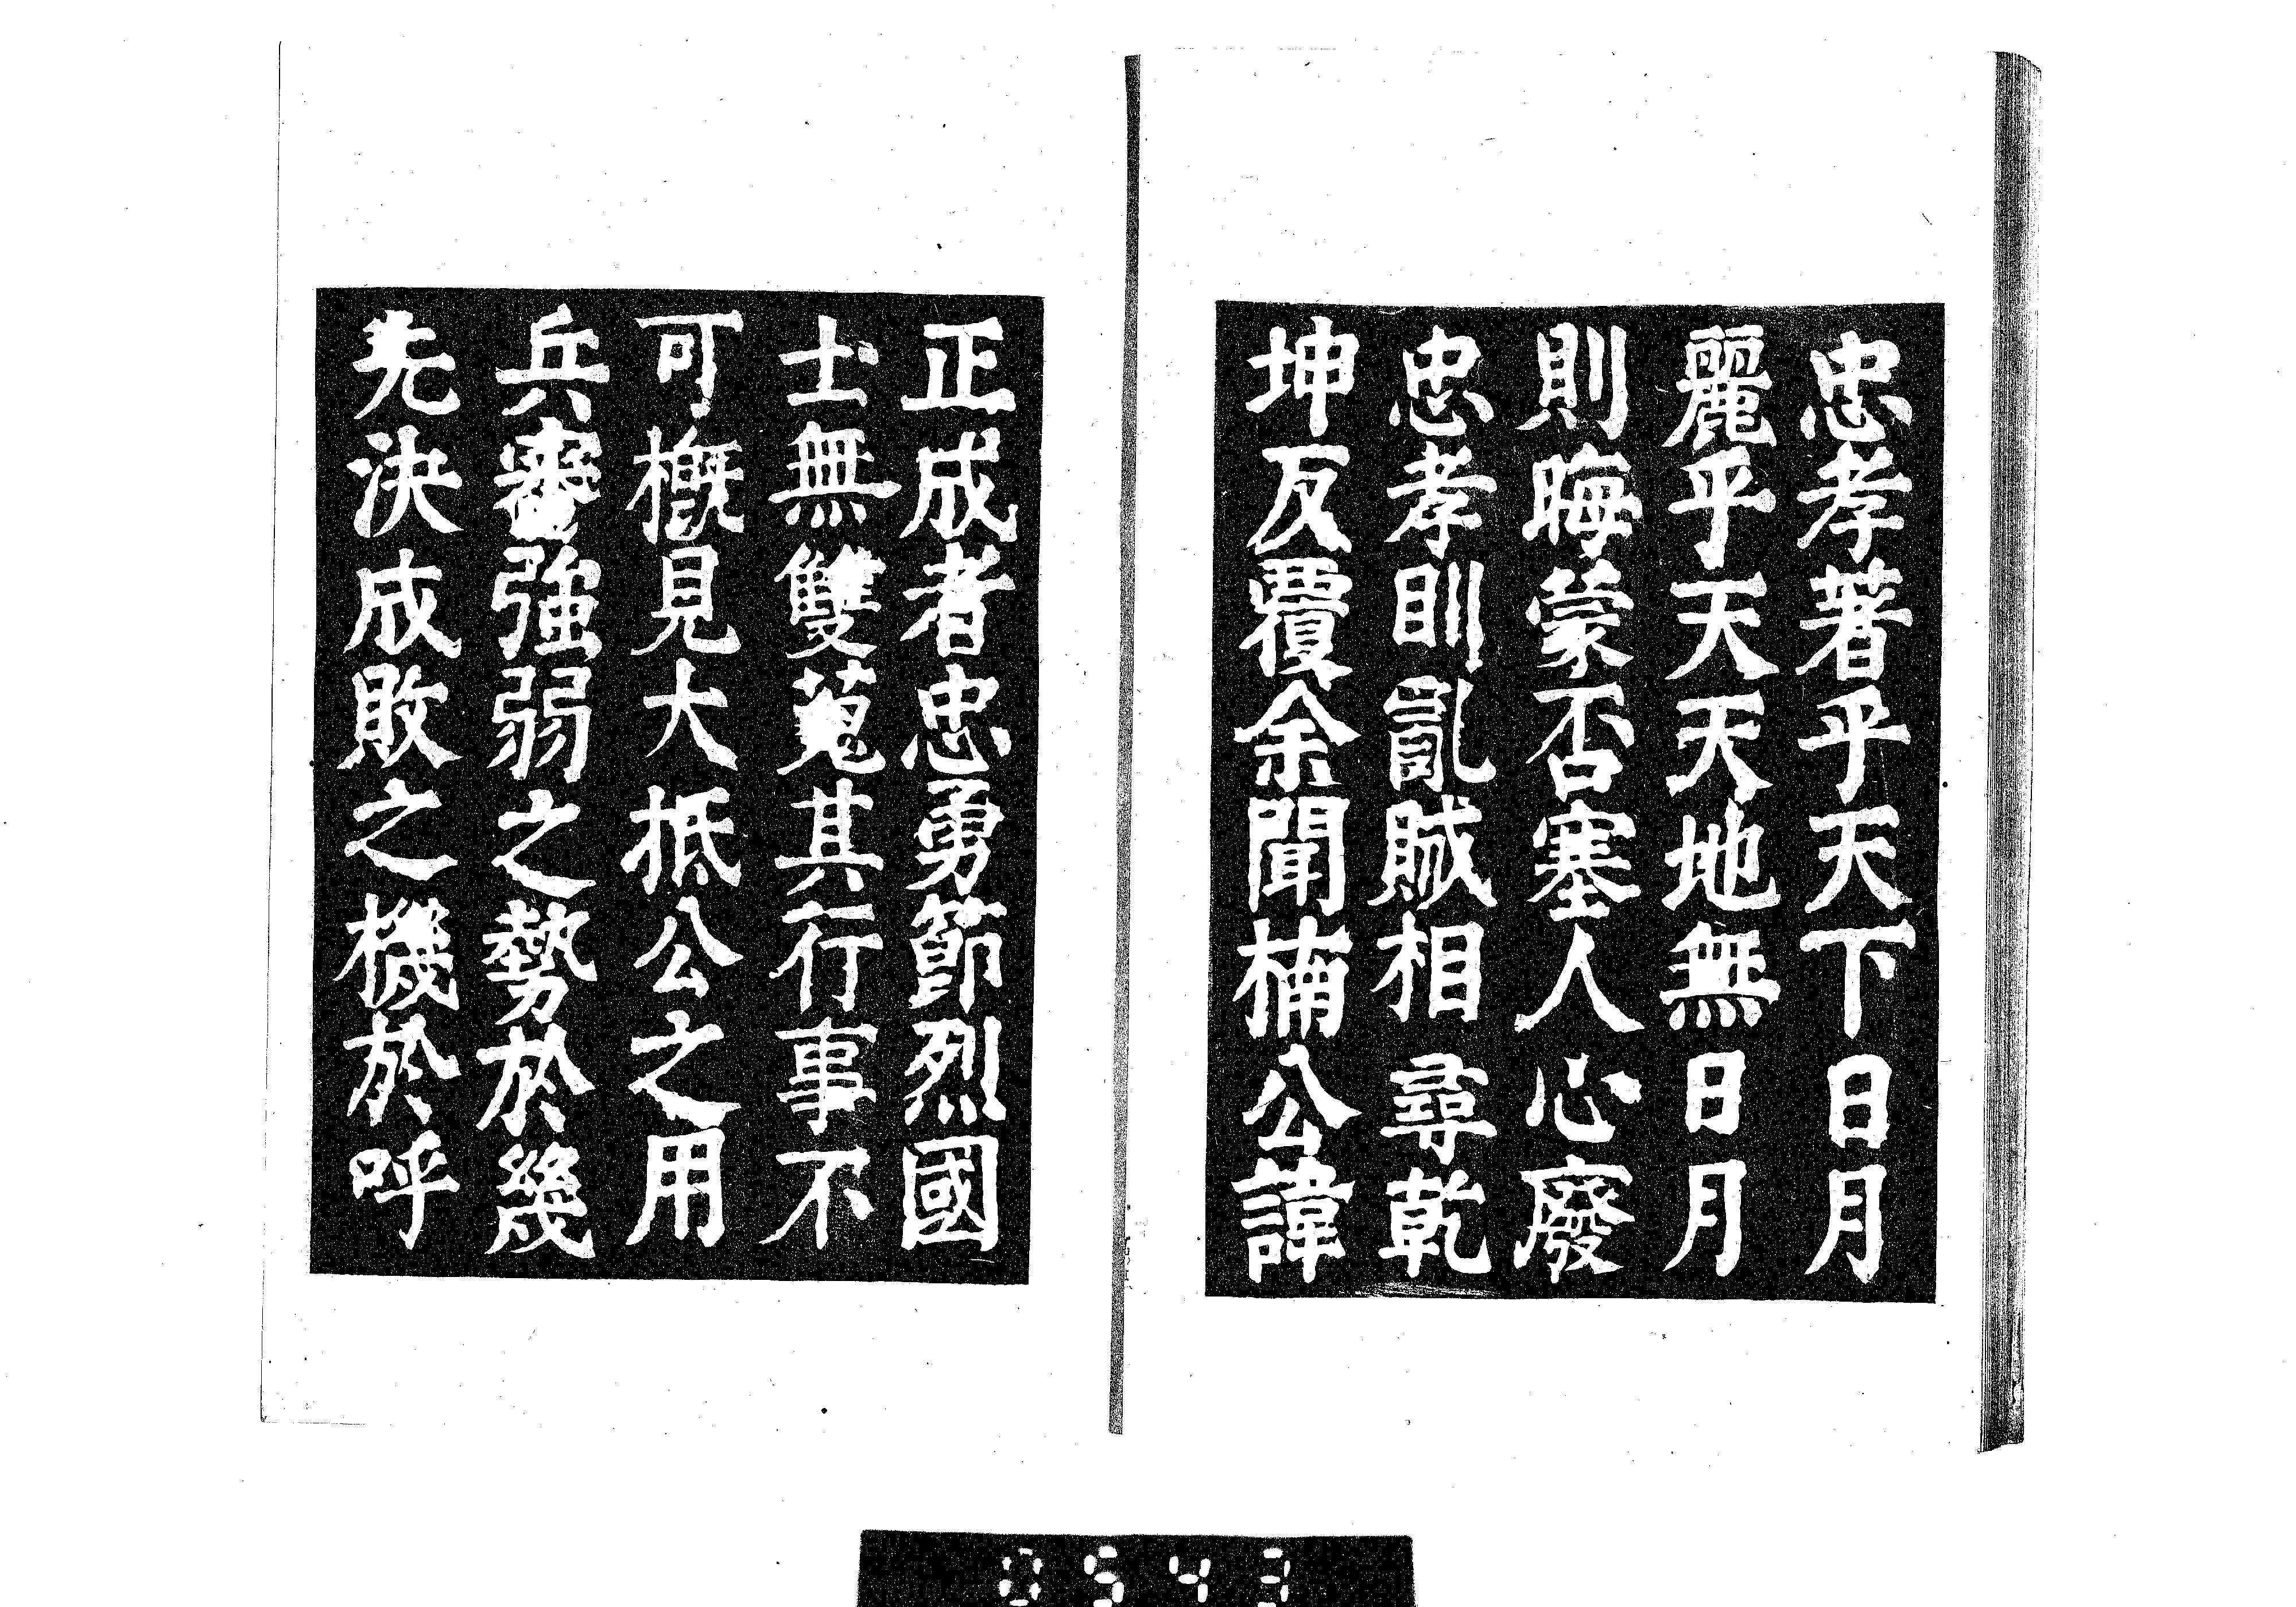 忠孝著乎天下日月
麗乎天天地無日月
則晦蒙否塞人心廢
忠孝則亂賊相尋乾
坤反覆余聞楠公諱
正成者忠勇節烈國
士無雙蒐其行事不
可概見大抵公之用
兵審強弱之勢於幾
先決成敗之機於呼
0543